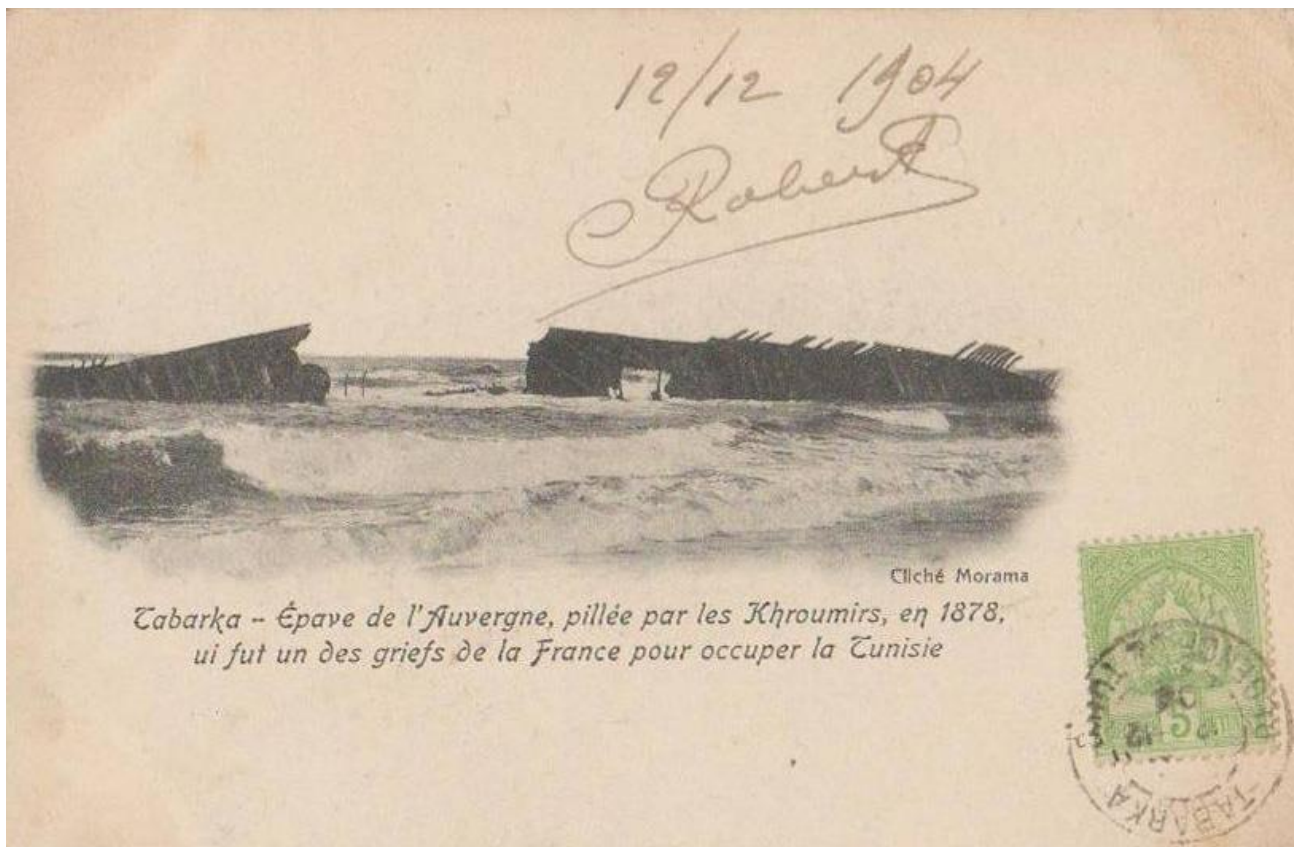 12/12 1904
Robert
Cliché Morama
Tabarka -- Épave de l'Auvergne, pillée par les Khroumirs, en 1878,
ui fut un des griefs de la France pour occuper la Tunisie
5
TABARKA